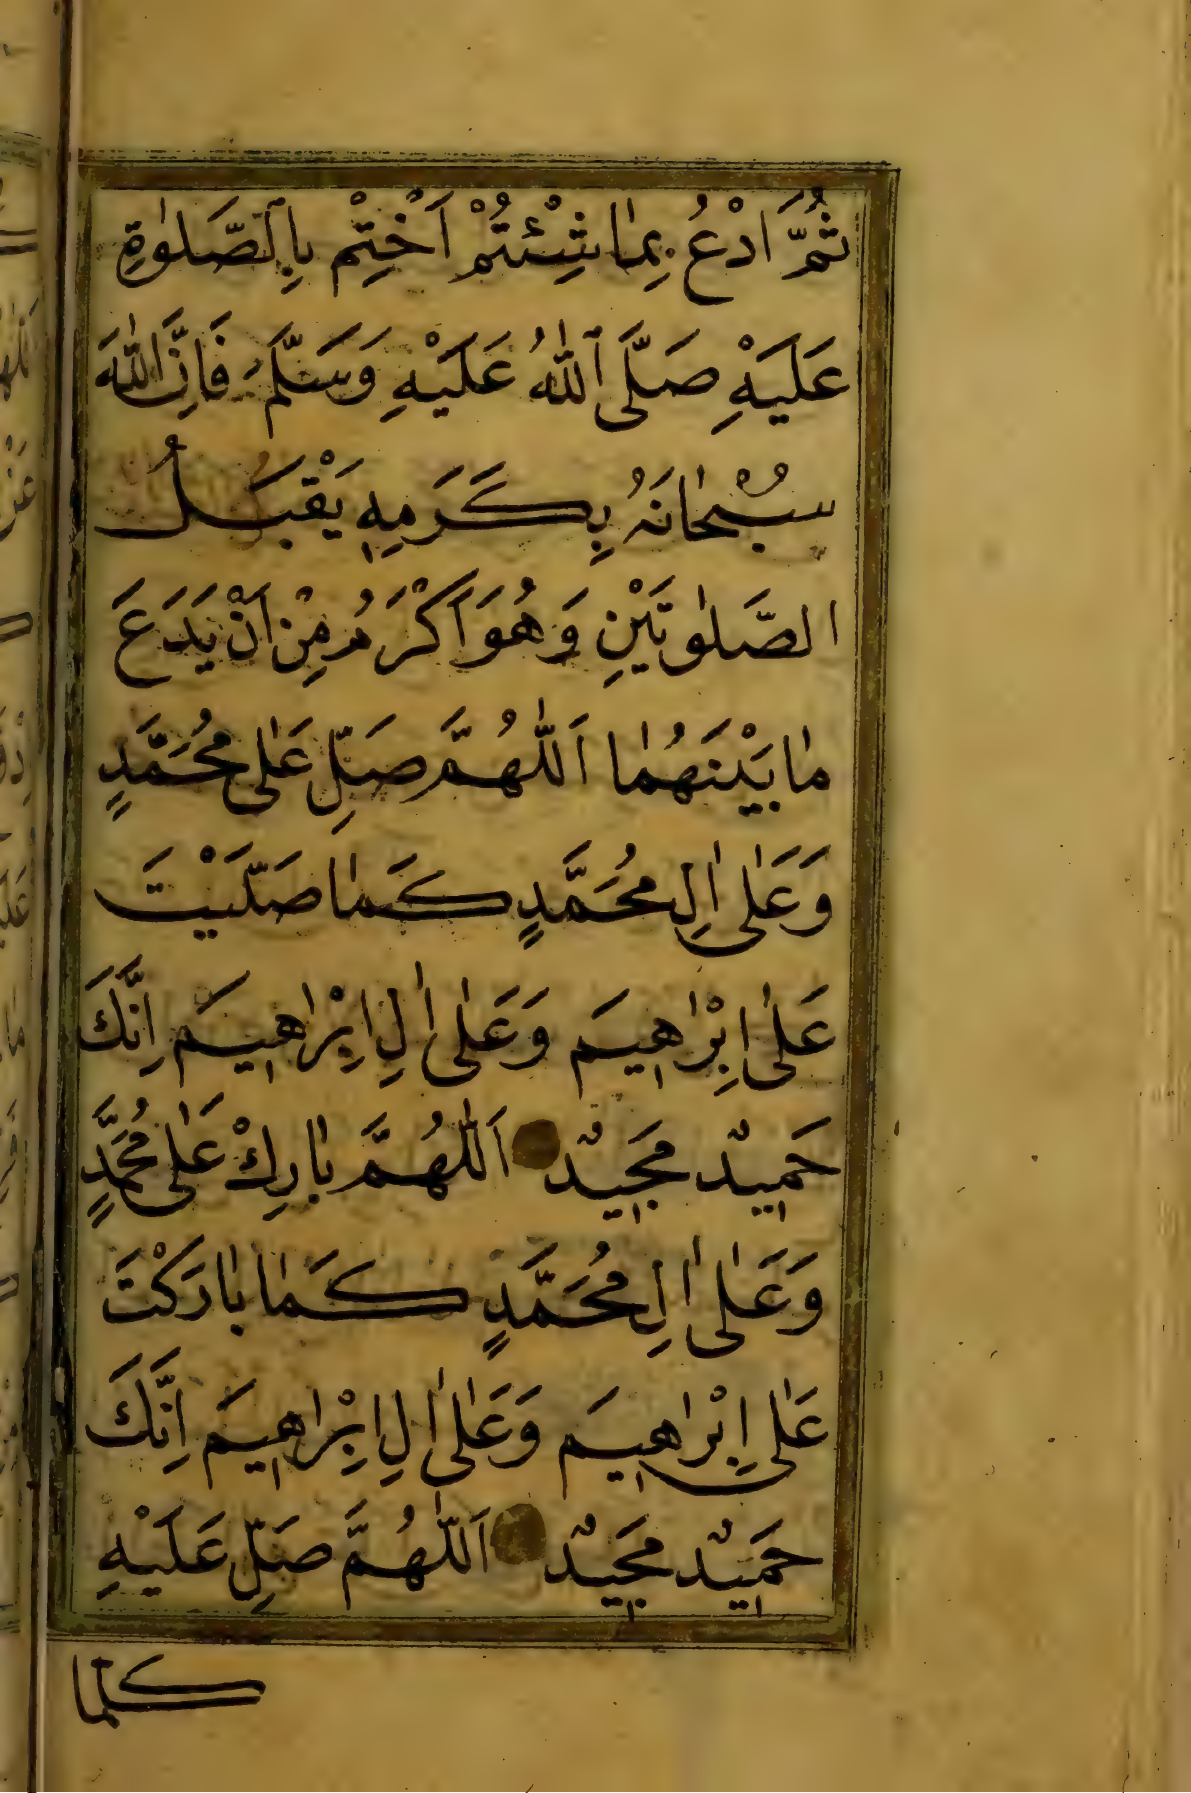 ثُمَّ ادْعُ بِمَا شِئْتُمْ اَخْتِمْ بِالصَّلٰوةِ
عَلَيْهِ صَلَّى اللّٰهُ عَلَيْهِ وَسَلَّمَ فَاِنَّ اللّٰهَ
سُبْحَانَهُ بِكَرَمِهِ يَقْبَلُ
الصَّلٰوتَيْنِ وَهُوَ اَكْرَمُ مِنْ اَنْ يَدَعَ
مَا بَيْنَهُمَا اَللّٰهُمَّ صَلِّ عَلٰى مُحَمَّدٍ
وَعَلٰى اٰلِ مُحَمَّدٍ كَمَا صَلَّيْتَ
عَلٰى اِبْرٰاهِيمَ وَعَلٰى اٰلِ اِبْرٰاهِيمَ اِنَّكَ
حَمِيدٌ مَجِيدٌ اَللّٰهُمَّ بَارِكْ عَلٰى مُحَمَّدٍ
وَعَلٰى اٰلِ مُحَمَّدٍ كَمَا بَارَكْتَ
عَلٰى اِبْرٰاهِيمَ وَعَلٰى اٰلِ اِبْرٰاهِيمَ اِنَّكَ
حَمِيدٌ مَجِيدٌ اَللّٰهُمَّ صَلِّ عَلَيْهِ
كلما